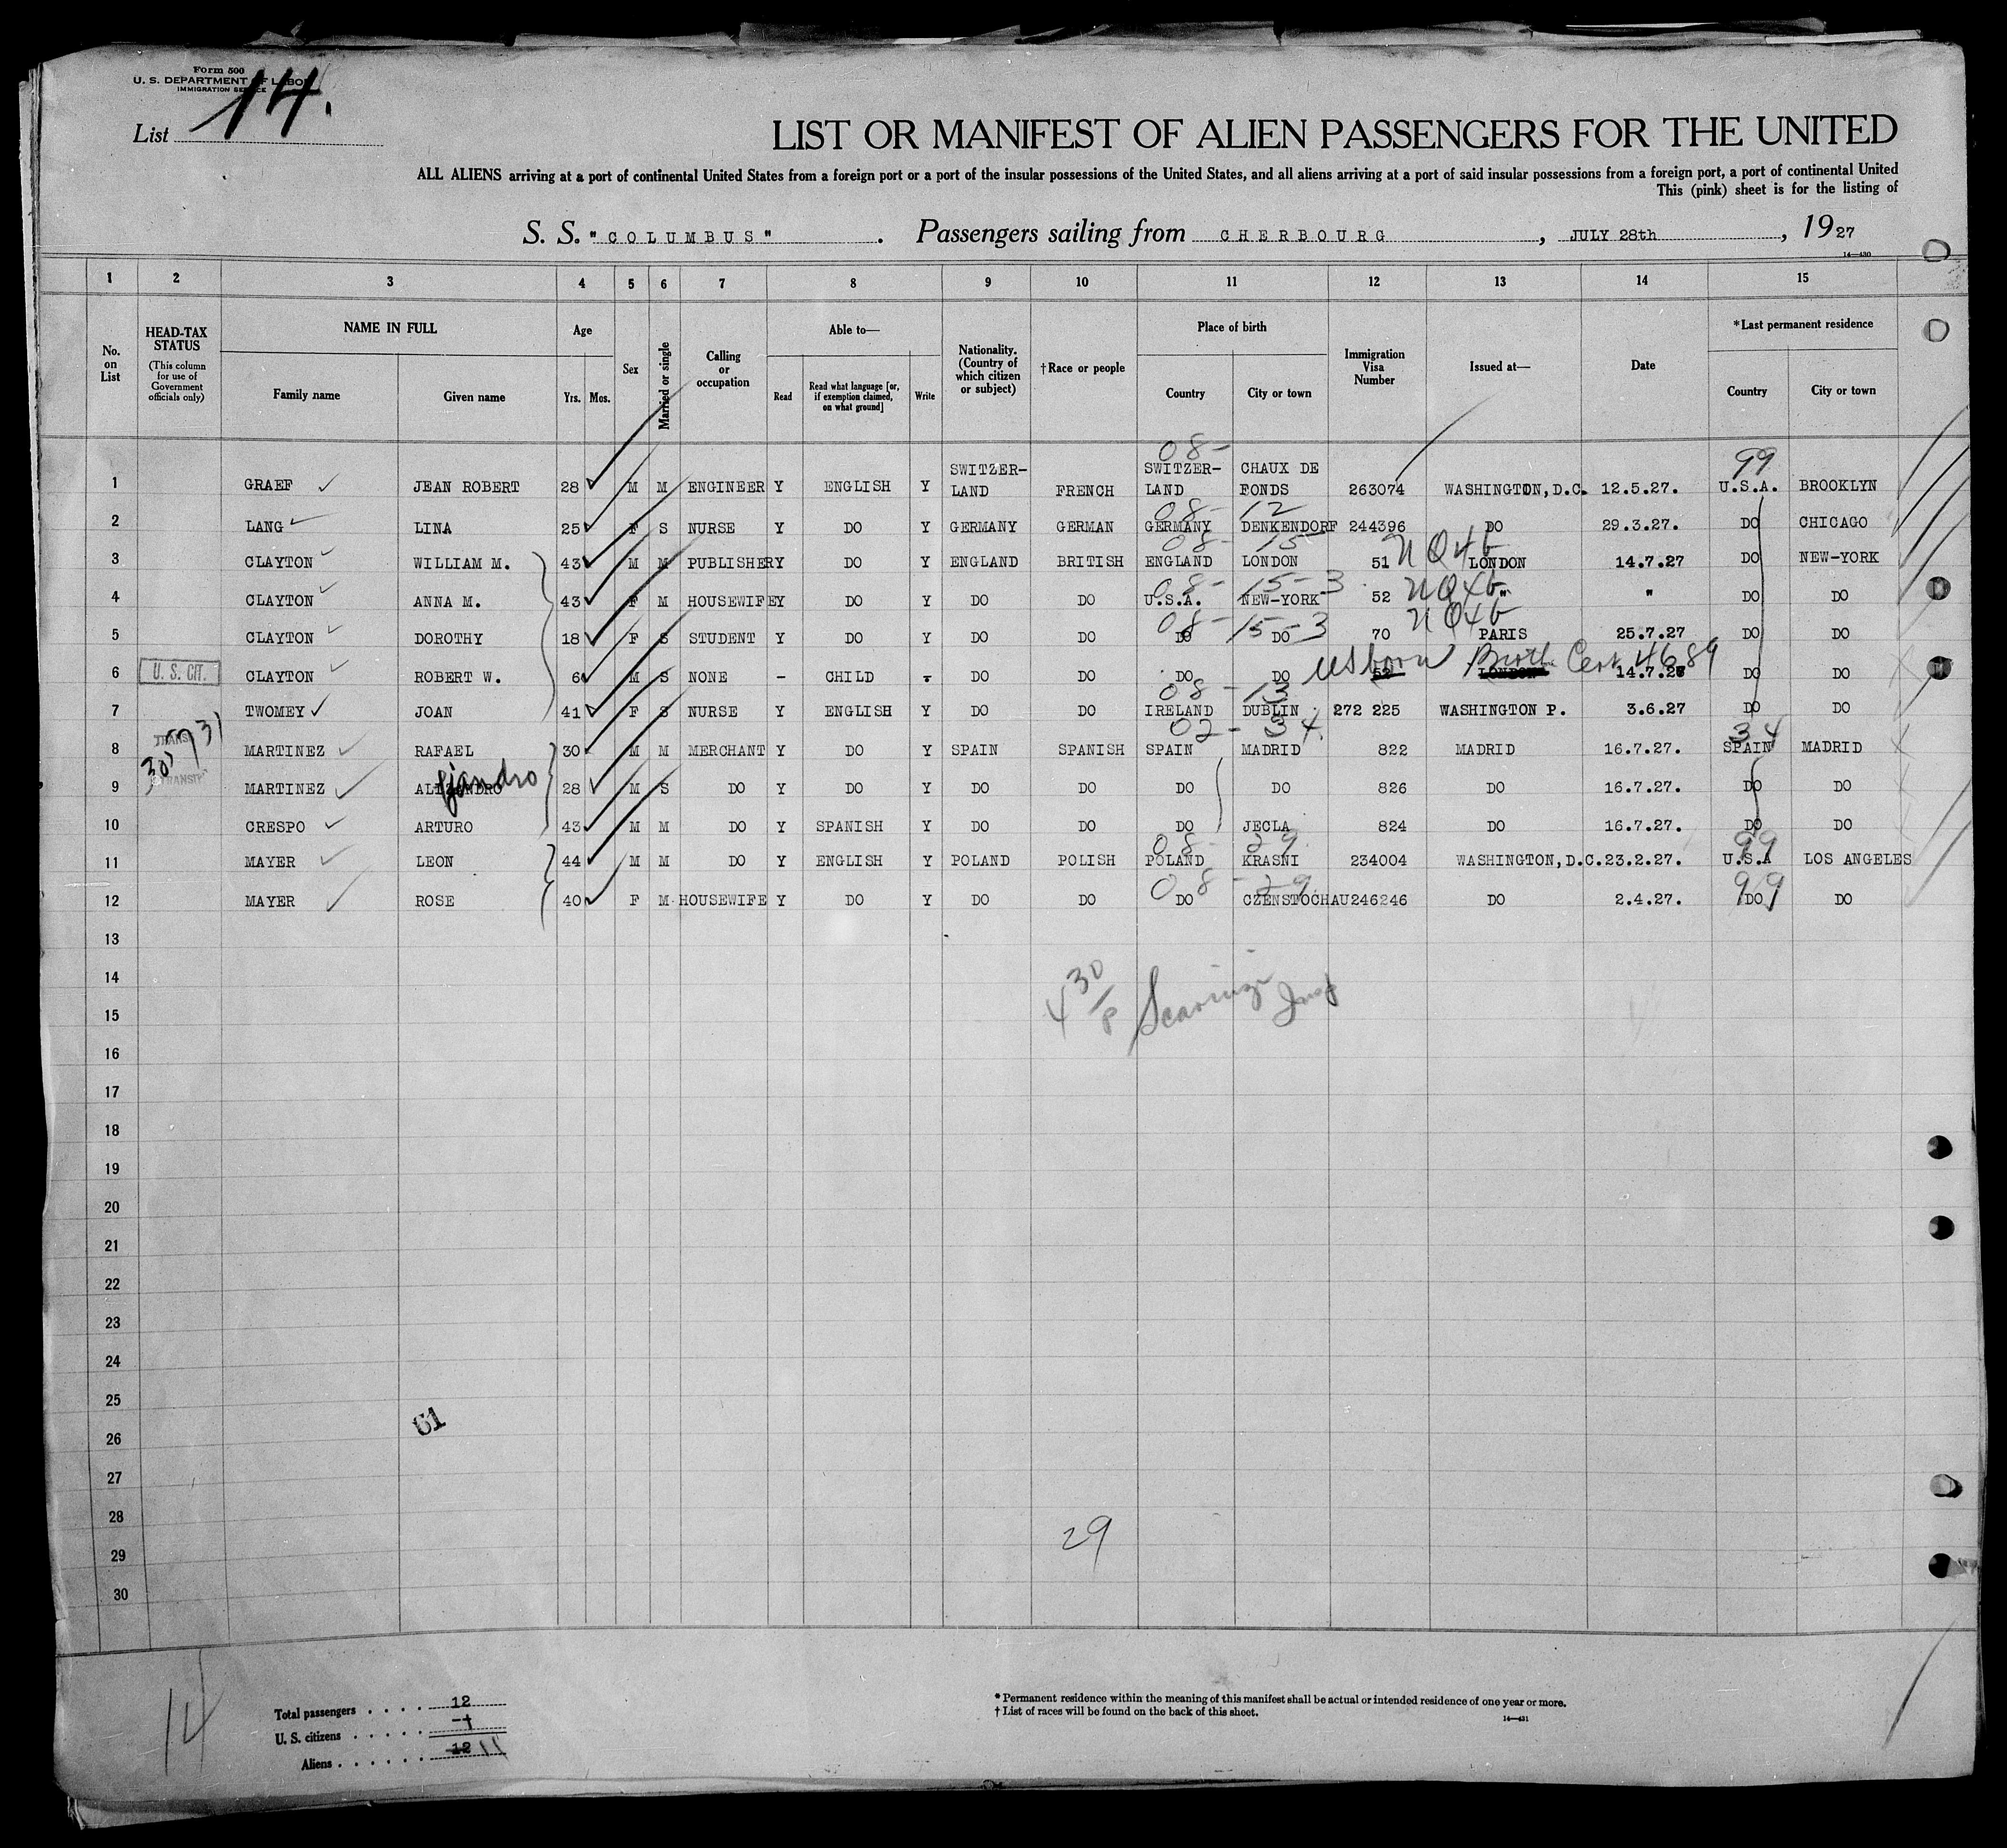 Form 500
U. S. DEPARTMENT OF LABOR
IMMIGRATION SERVICE
List 14.
LIST OR MANIFEST OF ALIEN PASSENGERS FOR THE UNITED
ALL ALIENS arriving at a port of continental United States from a foreign port or a port of the insular possessions of the United States, and all aliens arriving at a port of said insular possessions from a foreign port, a port of continental United
This (pink) sheet is for the listing of
S. S. "COLUMBUS". Passengers sailing from CHERBOURG, JULY 28th, 1927
14—430
1 2 3 4 5 6 7 8 9 10 11 12 13 14 15
No. on List
HEAD-TAX STATUS (This column for use of Government officials only)
NAME IN FULL Family name Given name
Age Yrs. Mos.
Sex
Married or single
Calling or occupation
Able to— Read Read what language [or, if exemption claimed, on what ground] Write
Nationality. (Country of which citizen or subject)
†Race or people
Place of birth Country City or town
Immigration Visa Number
Issued at—
Date
*Last permanent residence Country City or town
08- 99
1 GRAEF JEAN ROBERT 28 M M ENGINEER Y ENGLISH Y SWITZER-LAND FRENCH SWITZER-LAND CHAUX DE FONDS 263074 WASHINGTON, D.C. 12.5.27. U.S.A. BROOKLYN
08- 12
2 LANG LINA 25 F S NURSE Y DO Y GERMANY GERMAN GERMANY DENKENDORF 244396 DO 29.3.27. DO CHICAGO
08- 15
3 CLAYTON WILLIAM M. 43 M M PUBLISHER Y DO Y ENGLAND BRITISH ENGLAND LONDON 51 LONDON 14.7.27 DO NEW-YORK
08- 15-3
4 CLAYTON ANNA M. 43 F M HOUSEWIFE Y DO Y DO DO U.S.A. NEW-YORK 52 " " DO DO
08- 15-3
5 CLAYTON DOROTHY 18 F S STUDENT Y DO Y DO DO DO DO 70 PARIS 25.7.27 DO DO
US born Birth Cert 4689
6 U. S. CIT. CLAYTON ROBERT W. 6 M S NONE - CHILD - DO DO DO DO 52 LONDON 14.7.27 DO DO
08-13
7 TWOMEY JOAN 41 F S NURSE Y ENGLISH Y DO DO IRELAND DUBLIN 272 225 WASHINGTON P. 3.6.27 DO DO
02-34 34
8 MARTINEZ RAFAEL 30 M M MERCHANT Y DO Y SPAIN SPANISH SPAIN MADRID 822 MADRID 16.7.27. SPAIN MADRID
TRANSIT
9 MARTINEZ ALEZANDRO jandro 28 M S DO Y DO Y DO DO DO DO 826 DO 16.7.27. DO DO
10 CRESPO ARTURO 43 M M DO Y SPANISH Y DO DO DO JECLA 824 DO 16.7.27. DO DO
08- 29 99
11 MAYER LEON 44 M M DO Y ENGLISH Y POLAND POLISH POLAND KRASNI 234004 WASHINGTON, D.C. 23.2.27. U.S.A LOS ANGELES
08-29 99
12 MAYER ROSE 40 F M HOUSEWIFE Y DO Y DO DO DO CZENSTOCHAU 246246 DO 2.4.27. DO DO
13
14
4 30/P
15
16
17
18
19
20
21
22
23
24
25
61
26
27
28
29
29
30
14
Total passengers . . . . 12
U. S. citizens . . . . . -1
Aliens . . . . . . 12 11
* Permanent residence within the meaning of this manifest shall be actual or intended residence of one year or more.
† List of races will be found on the back of this sheet.
14—431